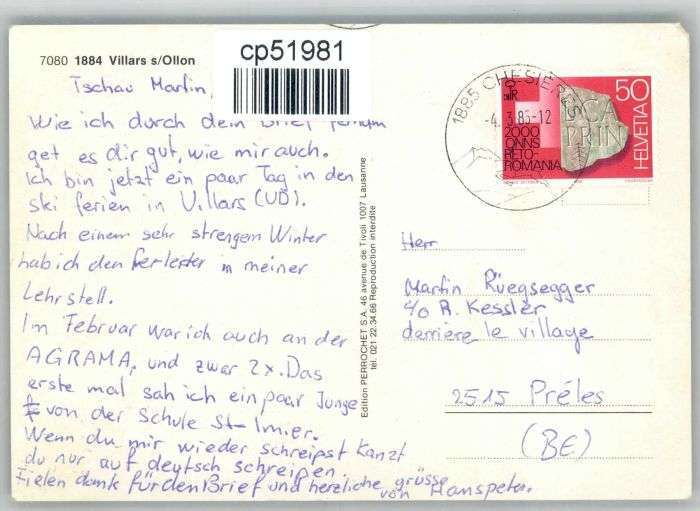 7080 1884 Villars s/Ollon
cp51981
Tschau Martin,
Wie ich durch dein Brief
get es dir gut, wie mir auch.
Ich bin jetzt ein paar Tag in den
ski ferien in Villars (VD).
Nach einem sehr strengem Winter
hab ich den in meiner
Lehrstell.
Im Februar war ich auch an der
AGRAMA, und zwar 2x. Das
erste mal sah ich ein paar Junge
von der Schule St-Imier.
Wenn du mir wieder schreipst kanzt
du nur auf deutsch schreipen.
Fielen dank für den Brief und herzliche grüsse
von Hanspeter.
Edition PERROCHET S.A. 46 avenue de Tivoli 1007 Lausanne
tél. 021 22.34.66 Reproduction interdite
1885 CHESIÈRES
-4. 3.85-12
50
HELVETIA
2000
ONNS
RETO-
ROMANIA
Herr
Martin Rüegsegger
c/o R. Kessler
derrière le village
2515 Prêles
(BE)